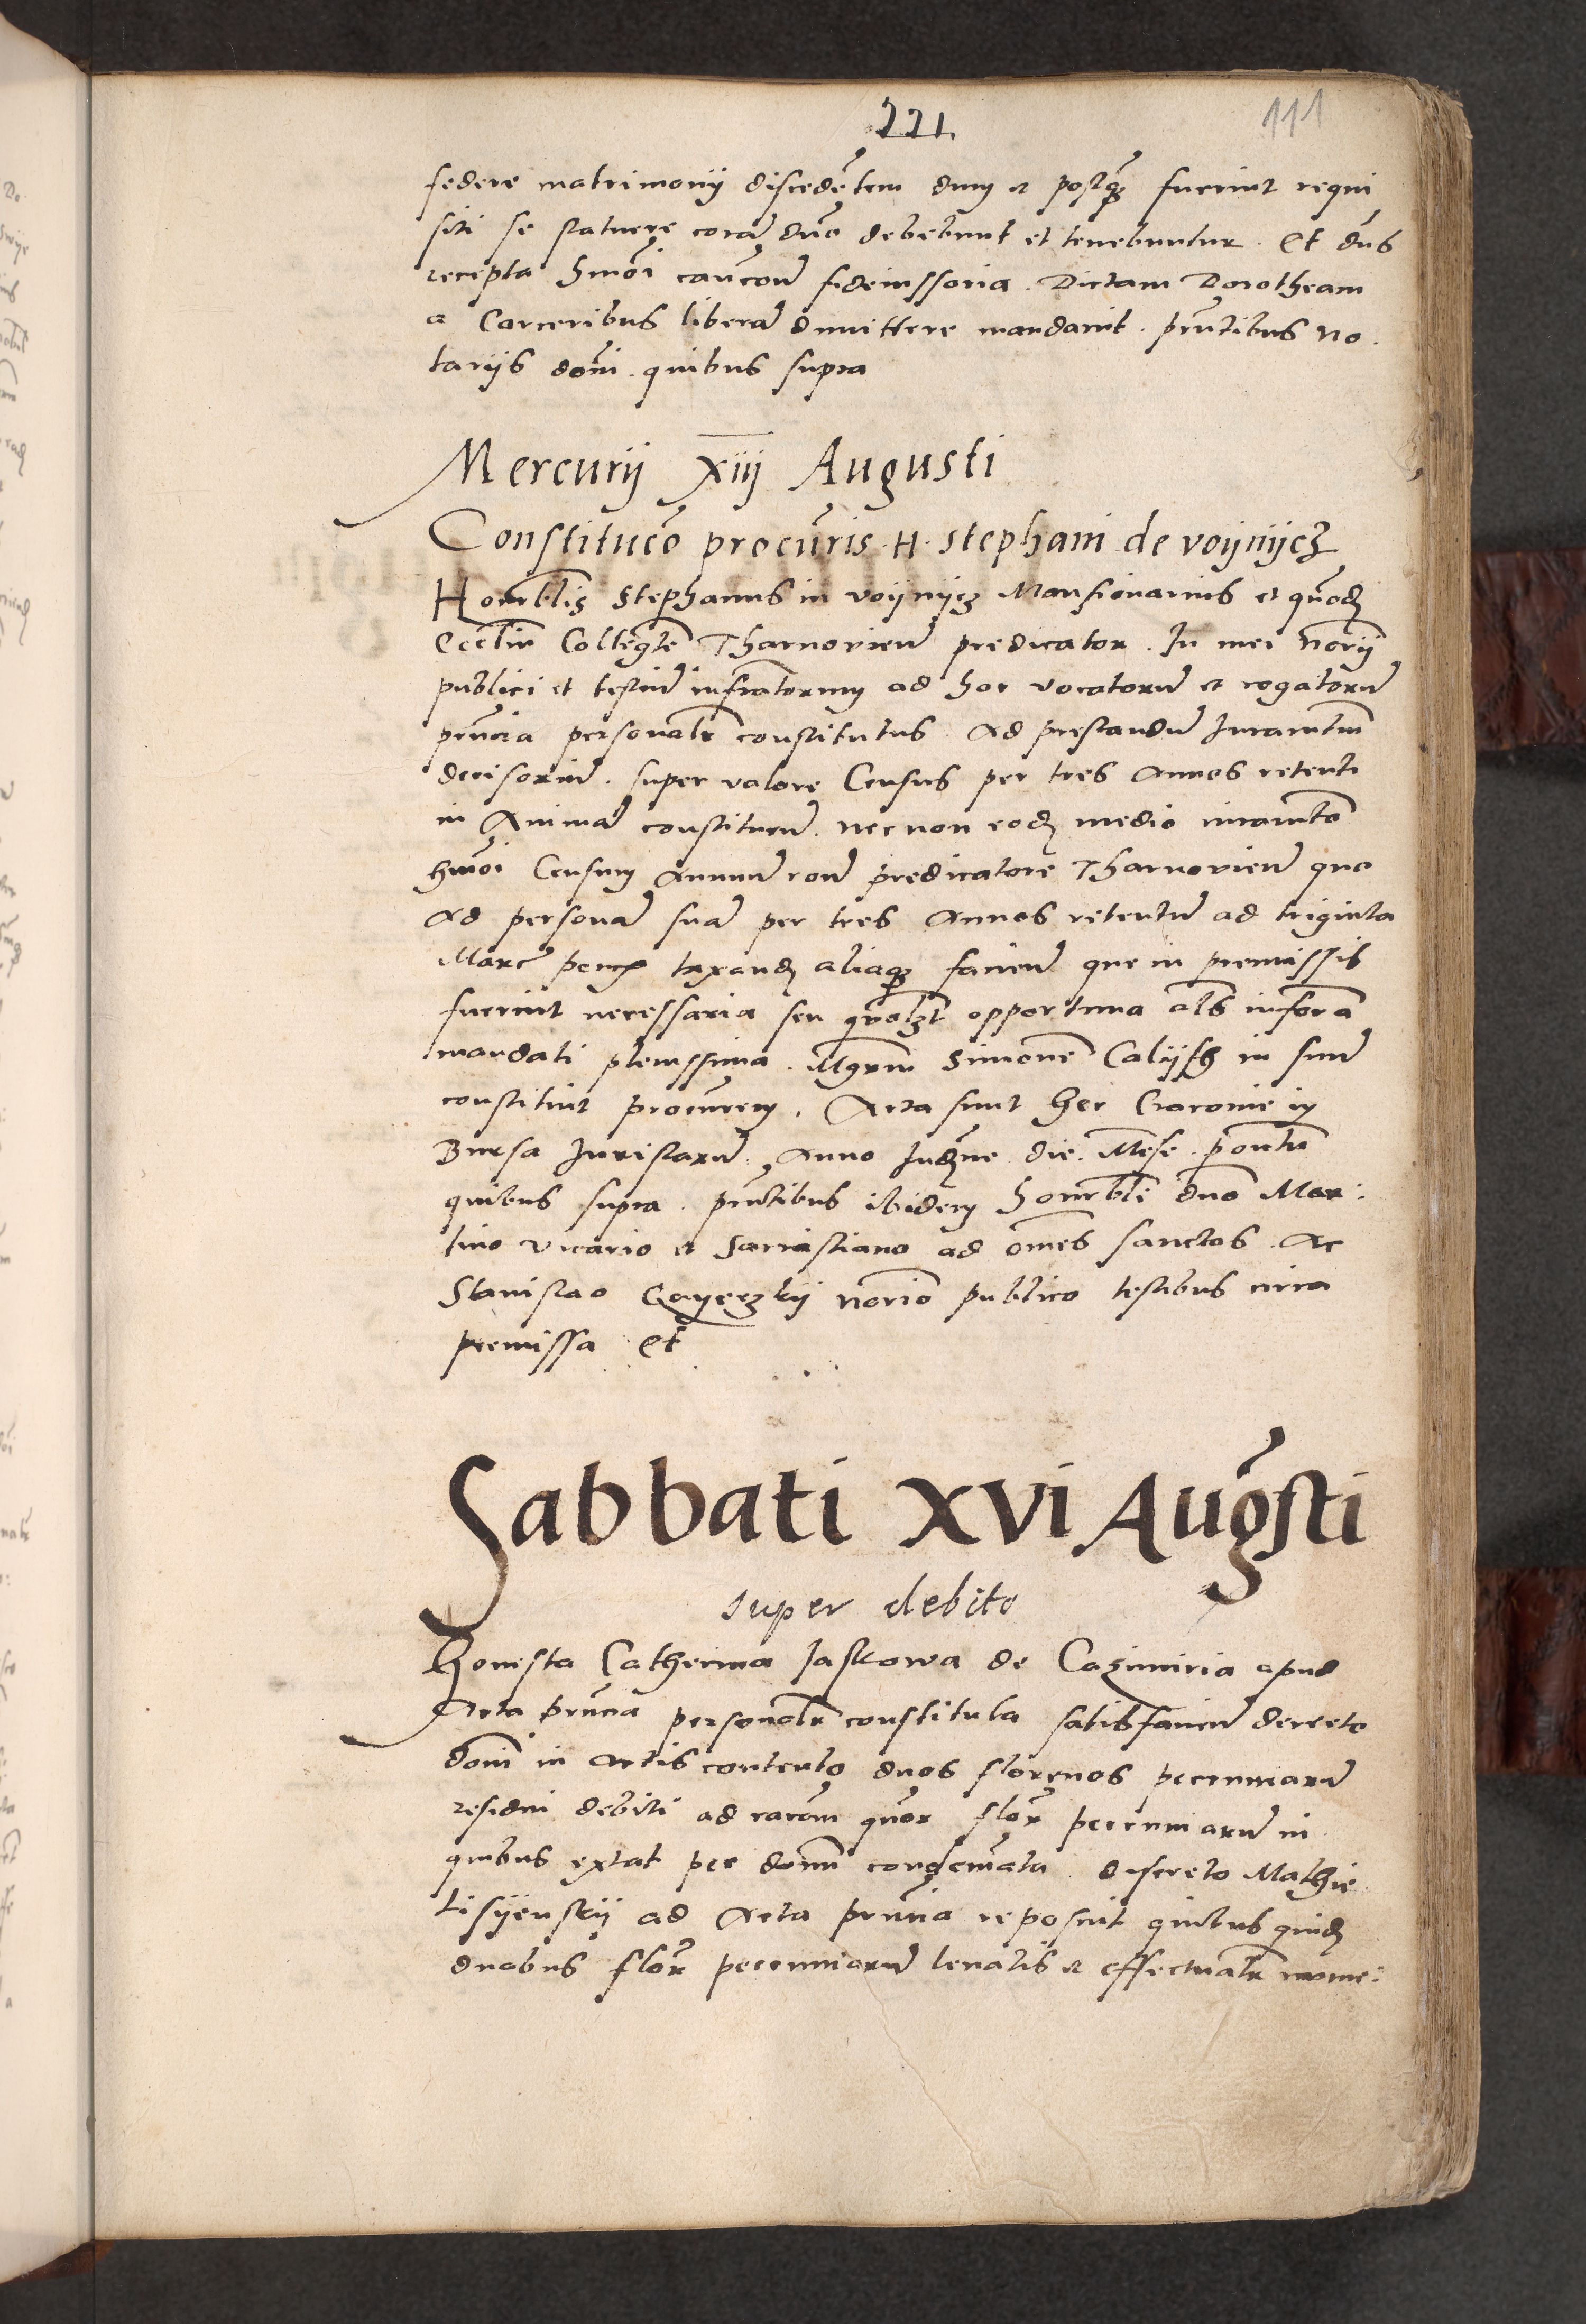 221
111
federe matrimonij discedẽtem dum et postq̃ fuerint requi
siti se statuere corã dño debebunt et tenebuntur. Et dñs
recepta hmõi cauẽcoñ fideiussoria. Dictam Dorotheam
a Carceribus liberã dimittere mandavit. pñtibus No.
tarijs doñi. quibus supra
Mercurij xiij Augusti
Constitucõ procũris H. Stephani de voijnijcz
Honorblis Stephanus in voijnijcz Mansionarius et quõd
Ecclie Collegte Tharnovieñ predicator. In mei Norij
publici et testiũ infrator̃um ad hoc vocatorũ et rogatorũ
pñcia personalr constitutus. Ad prestandũ Iuramtum
decisoriũ. super valore Census per tres Annos retenti
in Animã constitueñ. necnon eod medio iuramto
hmõi Censum Annuũ coñ predicatore Tharnovieñ quo
Ad personã suã per tres Annos retentũ ad triginta
Marc̃ taxand aliaq̃ facieñ que in premissis
fuerint necessaria seu opportuna als in forã
mandati plenissima. Mgrm Simonẽ Calijsch in suũ
constituit procũrem. Acta sunt hec Cracovie in
Bursa Iuristarũ. Anno Indcñe die. Mẽse. pontu
quibus supra. pñtibus ibidem honorbli dño Mar:
tino vicario et Sacristiano ad oẽs sanctos. Ac
Stanislao norio publico testibus circa
premissa Et
Sabbati XVI Augsti
super debito
Honesta Catherina Jaskowa de Cazimiria apud
Acta pñcia personalr constituta satisfacieñ decreto
doñi in Actis contento duos florenos pecuniarũ
residui debiti ad racõm quõr flor pecuniarũ in
quibus extat per doñm condẽnata. discreto Mathie
Lisijenskij ad Acta pñcia reposuit quibus quid
duobus flor pecuniarũ levatis et effectualr nume: